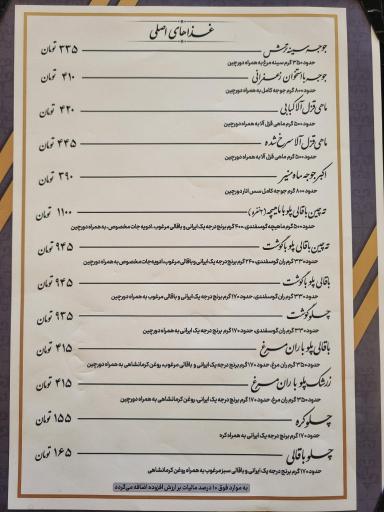 غذاهای اصلی
جوجه سینه ترش ۳۳۵ تومان
حدود ۳۵۰ گرم سینه مرغ به همراه دورچین
جوجه با استخوان زعفرانی ۴۱۰ تومان
حدود ۸۰۰ گرم جوجه کامل به همراه دورچین
ماهی قزل آلا کبابی ۴۲۰ تومان
حدود ۵۰۰ گرم ماهی قزل آلا به همراه دورچین
ماهی قزل آلا سرخ شده ۴۴۵ تومان
حدود ۵۰۰ گرم ماهی قزل آلا به همراه دورچین
اکبر جوجه ماه منیر ۳۹۰ تومان
حدود ۸۰۰ گرم جوجه کامل سس انار دورچین
ته چین باقالی پلو با ماهیچه (۲ نفره) ۱۱۰۰ تومان
حدود ۵۰۰ گرم ماهیچه گوسفندی، ۴۰۰ گرم برنج درجه یک ایرانی و باقالی مرغوب، ادویه جات مخصوص، به همراه دورچین
ته چین باقالی پلو با گوشت ۹۴۵ تومان
حدود ۳۳۰ گرم ران گوسفندی، ۲۴۰ گرم برنج درجه یک ایرانی و باقالی مرغوب، ادویه جات مخصوص به همراه دورچین
باقالی پلو با گوشت ۹۴۵ تومان
حدود ۳۳۰ گرم ران گوسفندی، حدود ۱۷۰ گرم برنج درجه یک ایرانی و باقالی مرغوب به همراه دورچین
چلو گوشت ۹۳۵ تومان
حدود ۳۳۰ گرم ران گوسفندی، حدود ۱۷۰ گرم برنج درجه یک ایرانی به همراه دورچین
باقالی پلو با ران مرغ ۴۱۵ تومان
حدود ۳۵۰ گرم ران مرغ، حدود ۱۷۰ گرم برنج درجه یک ایرانی و باقالی مرغوب، روغن کرمانشاهی به همراه دورچین
زرشک پلو با ران مرغ ۴۱۵ تومان
حدود ۳۵۰ گرم ران مرغ، حدود ۱۷۰ گرم برنج درجه یک ایرانی، روغن کرمانشاهی به همراه دورچین
چلو کره ۱۵۵ تومان
حدود ۱۷۰ گرم برنج درجه یک ایرانی به همراه کره
چلو باقالی ۱۶۵ تومان
حدود ۱۷۰ گرم برنج درجه یک ایرانی و باقالی سبز مرغوب به همراه روغن کرمانشاهی
به موارد فوق ۱۰ درصد مالیات بر ارزش افزوده اضافه می‌گردد